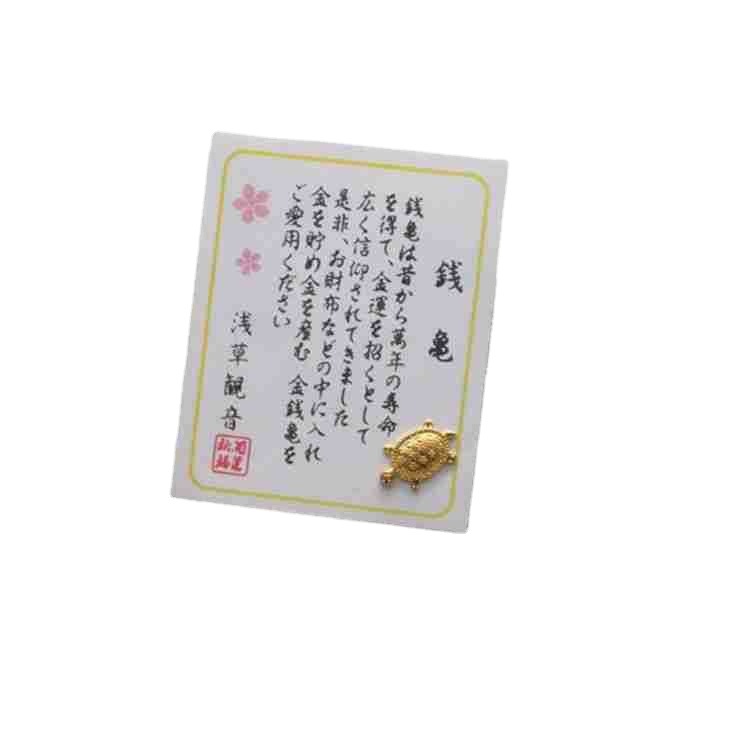 銭亀
銭亀は昔から萬年の寿命
を得て、金運を招くとして
広く信仰されてきました
是非、お財布などの中に入れ
金を貯め金を産む 金銭亀を
ご愛用ください
浅草観音